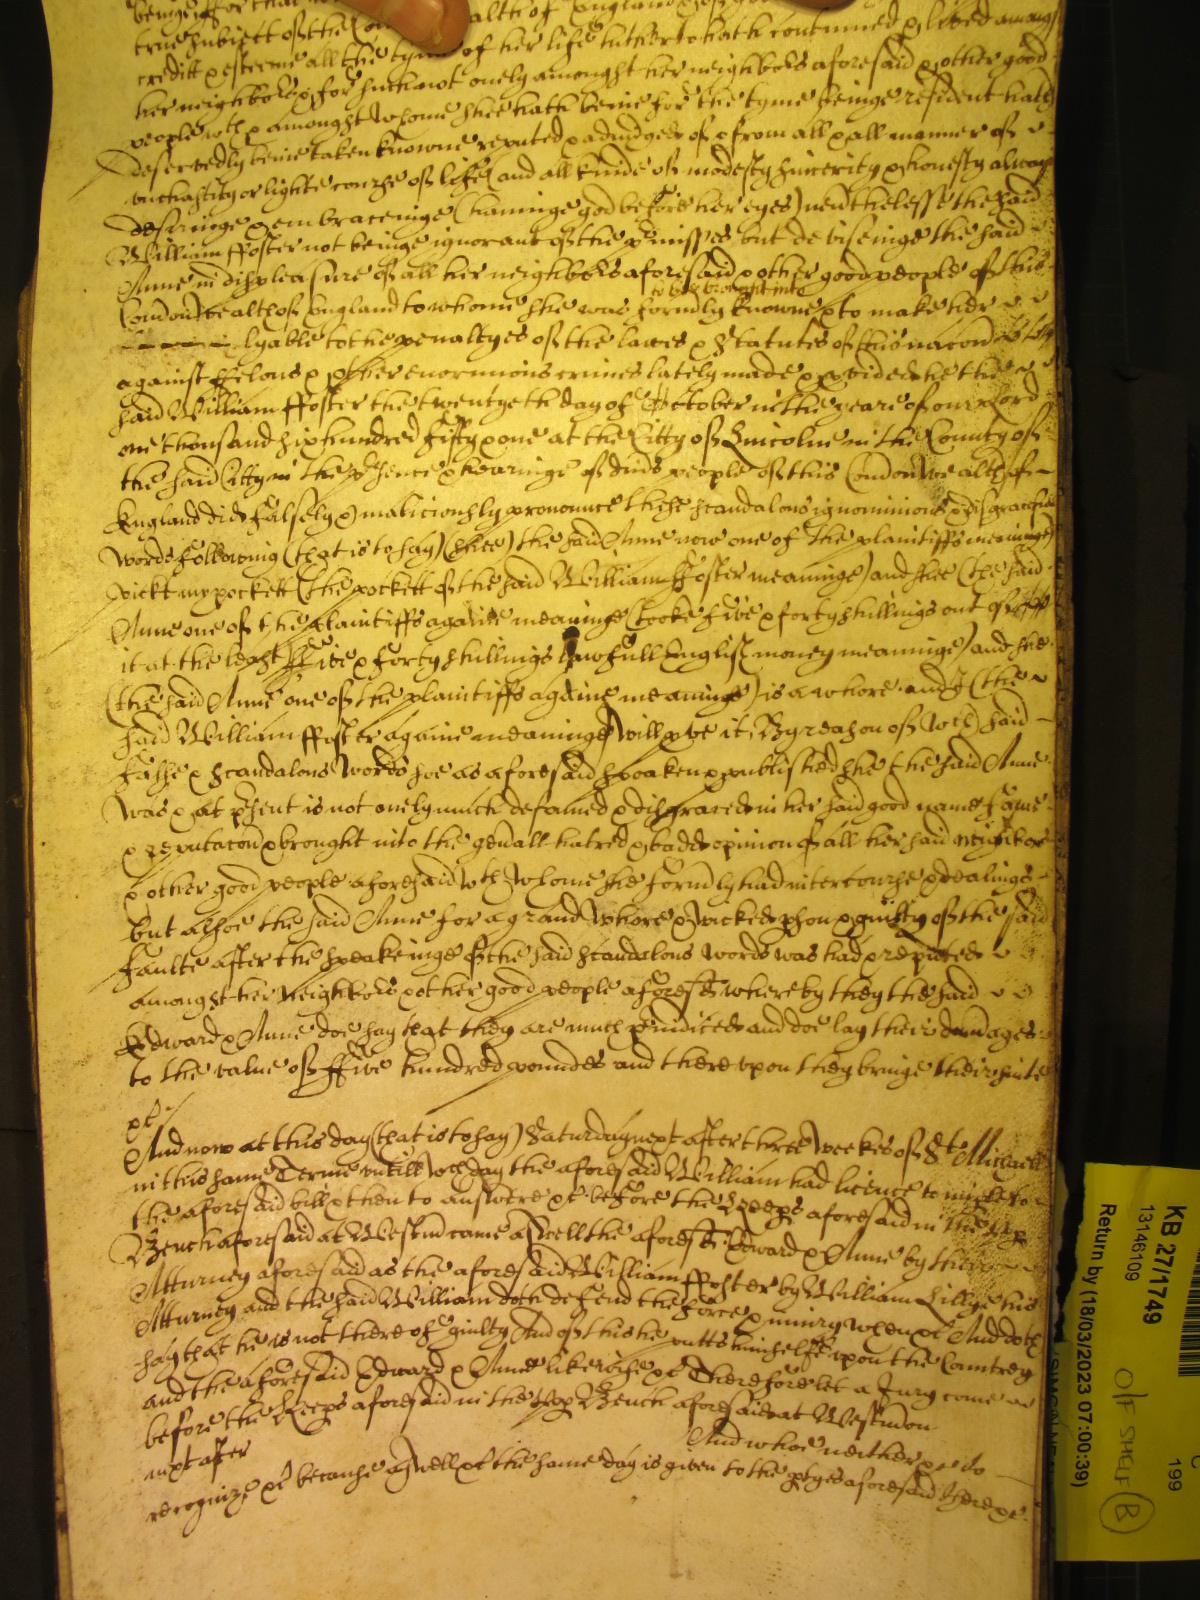 beinge
true subiect of the Co alth of England
creditt & esteeme all the tyme of her life hitherto hath contynued & lived amongst
her neighbors & for such not onely amongst her neighbors aforesaid & other good
people wth & amongst whome shee hath beene for the tyme beinge resident hath
deservedly beene taken knowne reputed & adiudged of & from all & all manner of
vnchastity or lighte course of life and all kinde of modesty sincerity & honesty alway
desiringe & embraceinge (haueinge god before her eyes) neuthelesse the said
William ffoster not beinge ignorant of the pmisses but deviseinge the said
Anne in displeasure of all her neighbors aforesaid & other good people of this
to bee brought into
Comonwealth of England to whome she was formly knowne & to make her
lyable to the penaltyes of the lawes & Statutes of this nacon
against ffelons & other enormious crimes lately made & pvided he the
said William ffoster the twentyeth day of October in the yeare of our Lord
one thousand six hundred fifty & one at the Citty of Lincolne in the County of
the said Citty in the psence & hearinge of divs people of this Comonwealth of
England did falsely & maliciously pronounce these scandalous ignominious & disgracefull
words followinge (that is to say) shee (the said Anne now one of the plaintiffs meaninge)
pickt my pockett (the pockett of the said William ffoster meaninge) and shee (the said
Anne one of the plaintiffs againe meaninge) tooke five & forty shillings out of
it at the least (ffive & forty shillings lawfull English money meaninge) and she
(the said Anne one of the plaintiffs againe meaninge) is a whore and I (the
said William ffoster againe meaninge) will pve it, By reason of wch said
false & scandalous words soe as aforesaid spoaken & published she the said Anne
was & at psent is not onely much defamed & disgraced in her said good name fame
& reputacon & brought into the genall hatred & badd opinion of all her said neighbors
& other good people aforesaid wth whome she formly had intercourse & dealings
but alsoe the said Anne for a grand whore & wicked pson & guilty of the said
faulte after the speakeinge of the said scandalous words was had & reputed
amongst her neighbors & other good people aforesd whereby they the said
Edward & Anne doe say that they are much pindiced and doe lay their damages
to the value of ffive hundred poundes and therevpon they bringe their suite
&c
And now at this day (that is to say) Saturday next after three weekes of St Michaell
in this same Terme vntill wch day the aforesaid William had licence to imple to
the aforesaid bill & then to answere &c before the Keeps aforesaid in the vpp
Bench aforesaid at Westm came aswell the aforesd Edward & Anne by their
Atturney aforesaid as the aforesaid William ffoster by William Lillye his
Atturney and the said William doth defend the force & iniury when &c And doth
say that he is not thereof guilty And of this he putts himselfe vpon the Countrey
and the aforesaid Edward & Anne likewise &c Therefore let a Jury come
before the Keeps aforesaid in the vpp Bench aforesaid at Westm on
next after And whoe neither &c to
recognize &c because aswell &c the same day is given to the ptyes aforesaid there &c
KB 27/1749
13146109
Return by (18/03/2023 07:00:39)
199
O/F SHELF B